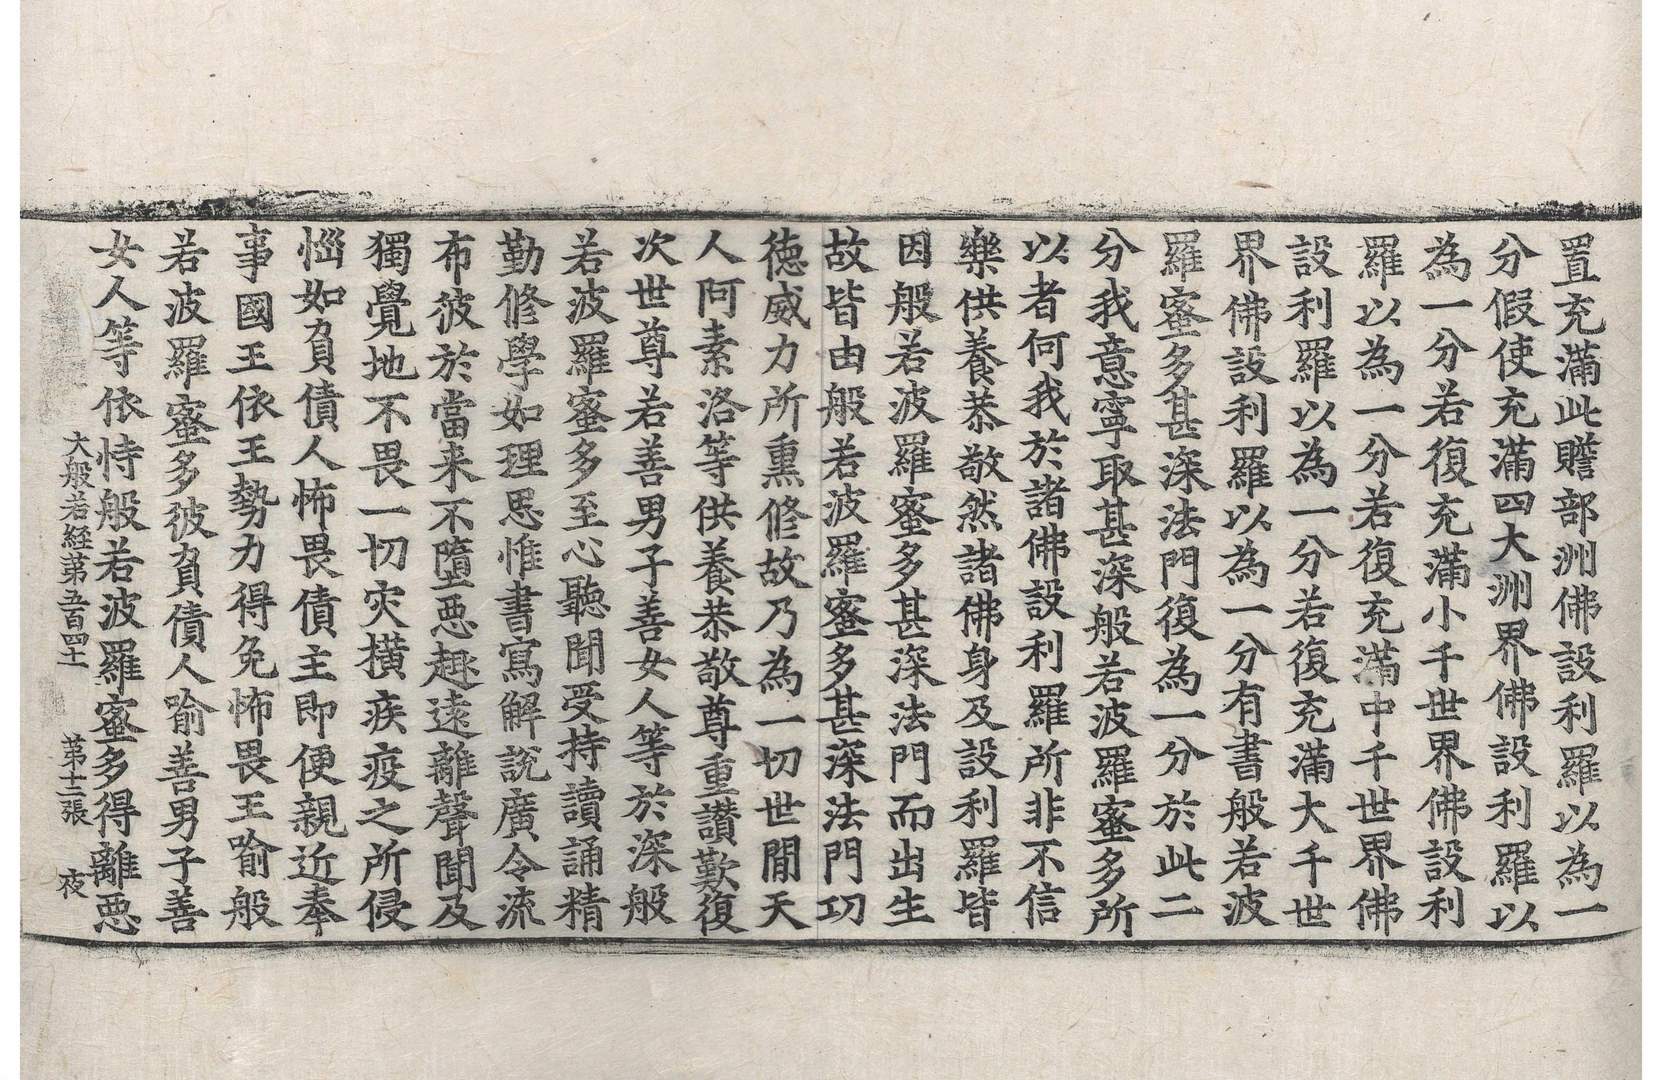 置充滿此贍部洲佛設利羅以為一
分假使充滿四大洲界佛設利羅以
為一分若復充滿小千世界佛設利
羅以為一分若復充滿中千世界佛
設利羅以為一分若復充滿大千世
界佛設利羅以為一分有書般若波
羅蜜多甚深法門復為一分於此二
分我意寧取甚深般若波羅蜜多所
以者何我於諸佛設利羅所非不信
樂供養恭敬然諸佛身及設利羅皆
因般若波羅蜜多甚深法門而出生
故皆由般若波羅蜜多甚深法門功
徳威力所熏修故乃為一切世間天
人阿素洛等供養恭敬尊重讃歎復
次世尊若善男子善女人等於深般
若波羅蜜多至心聽聞受持讀誦精
勤修學如理思惟書寫解說廣令流
布彼於當来不墮惡趣遠離聲聞及
獨覺地不畏一切灾横疾疫之所侵
惱如負債人怖畏債主即便親近奉
事國王依王勢力得免怖畏王喻般
若波羅蜜多彼負債人喻善男子善
女人等依恃般若波羅蜜多得離惡
大般若経第五百四十 第十二張 夜